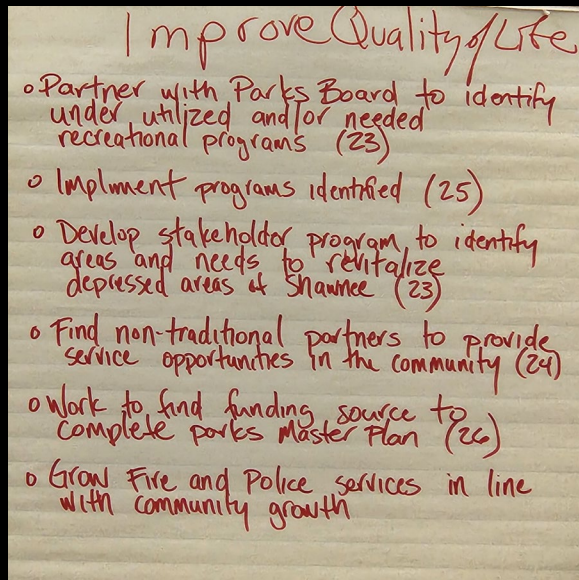 Improve Quality of Life
o Partner with Parks Board to identify
under utilized and/or needed
recreational programs (23)
o Implment programs identified (25)
o Develop stakeholder program, to identify
areas and needs to revitalize
depressed areas of Shawnee (23)
o Find non-traditional partners to provide
service opportunities in the community (24)
o Work to find funding source to
complete parks Master Plan (26)
o Grow Fire and Police services in line
with community growth